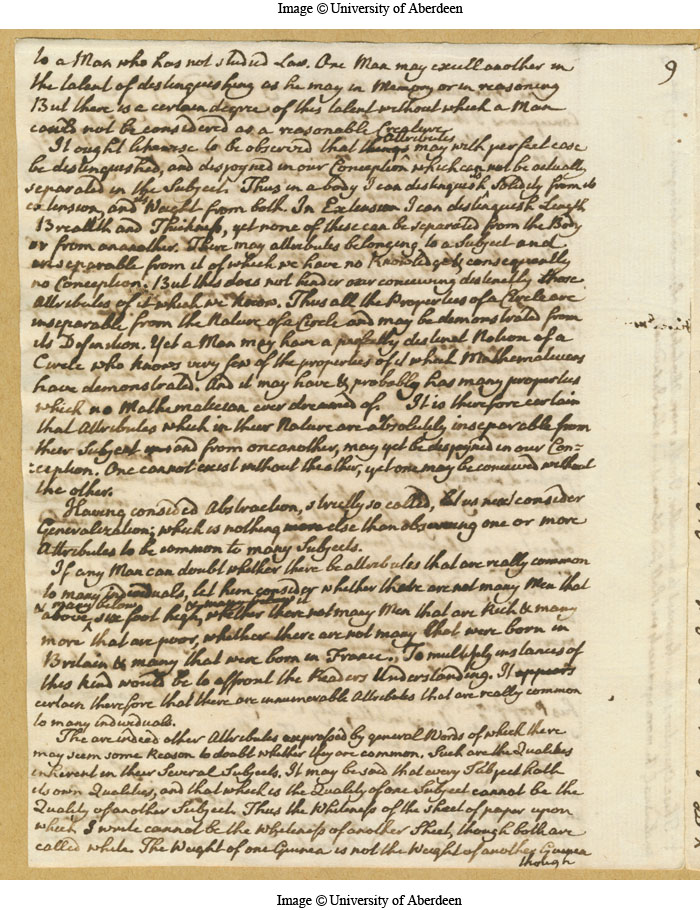 Image © University of Aberdeen
9
to a Man who has not studied Law. One Man may excell another in
the talent of distinguishing as he may in Memory or in reasoning
But there is a certain degree of this talent without which a Man
could not be considered as a reasonable Creature.
It ought likewise to be observed that attributes may with perfect ease
be distinguished, and disjoyned in our Conception which cannot be actually
separated in the Subject. Thus in a body I can distinguish Solidity from its
extension, and Weight from both. In Extension I can distinguish Length
Breadth and Thickness, yet none of these can be separated from the Body
or from ananother. There may attributes belonging to a Subject and
inseparable from it of which we have no Knowledge & consequently
no Conception. But this does not hinder our conceiving distinctly those
Attributes of it which we know. Thus all the Properties of a Circle are
inseparable from the Nature of a Circle and may be demonstrated from
its Definition. Yet a Man may have a perfectly distinct Notion of a
Circle who knows very few of the properties of it which Mathematicians
have demonstrated. And it may have & probably has many properties
which no Mathematician ever dreamed of. It is therefore certain
that Attributes which in their Nature are absolutely inseparable from
their Subject and from oneanother, may yet be disjoyned in our Con=
ception. One cannot exist without the other, yet one may be conceived without
the other.
Having considered Abstraction, strictly so called, let us next consider
Generalization; which is nothing else than observing one or more
Attributes to be common to many Subjects.
If any Man can doubt whether there be attributes that are really common
to many individuals, let him consider whether there are not many Men that
are
& many below it
above six foot high, whether there not many Men that are Rich & many
more that are poor, whether there are not many that were born in
Britain & many that were born in France. To multiply instances of
this kind would be to affront the Readers Understanding. It
certain therefore that there are innumerable Attributes that are really common
to many individuals.
The are indeed other Attributes expressed by general Words of which there
may seem some Reason to doubt whether they are common. Such are the Qualities
inherent in their Several Subjects. It may be said that every Subject hath
its own Qualities, and that which is the Quality of one Subject cannot be the
Quality of another Subject. Thus the Whiteness of the sheet of paper upon
which I write cannot be the Whiteness of another Sheet, though both are
called white. The Weight of one Guinea is not the Weight of another Guinea
though
Image © University of Aberdeen